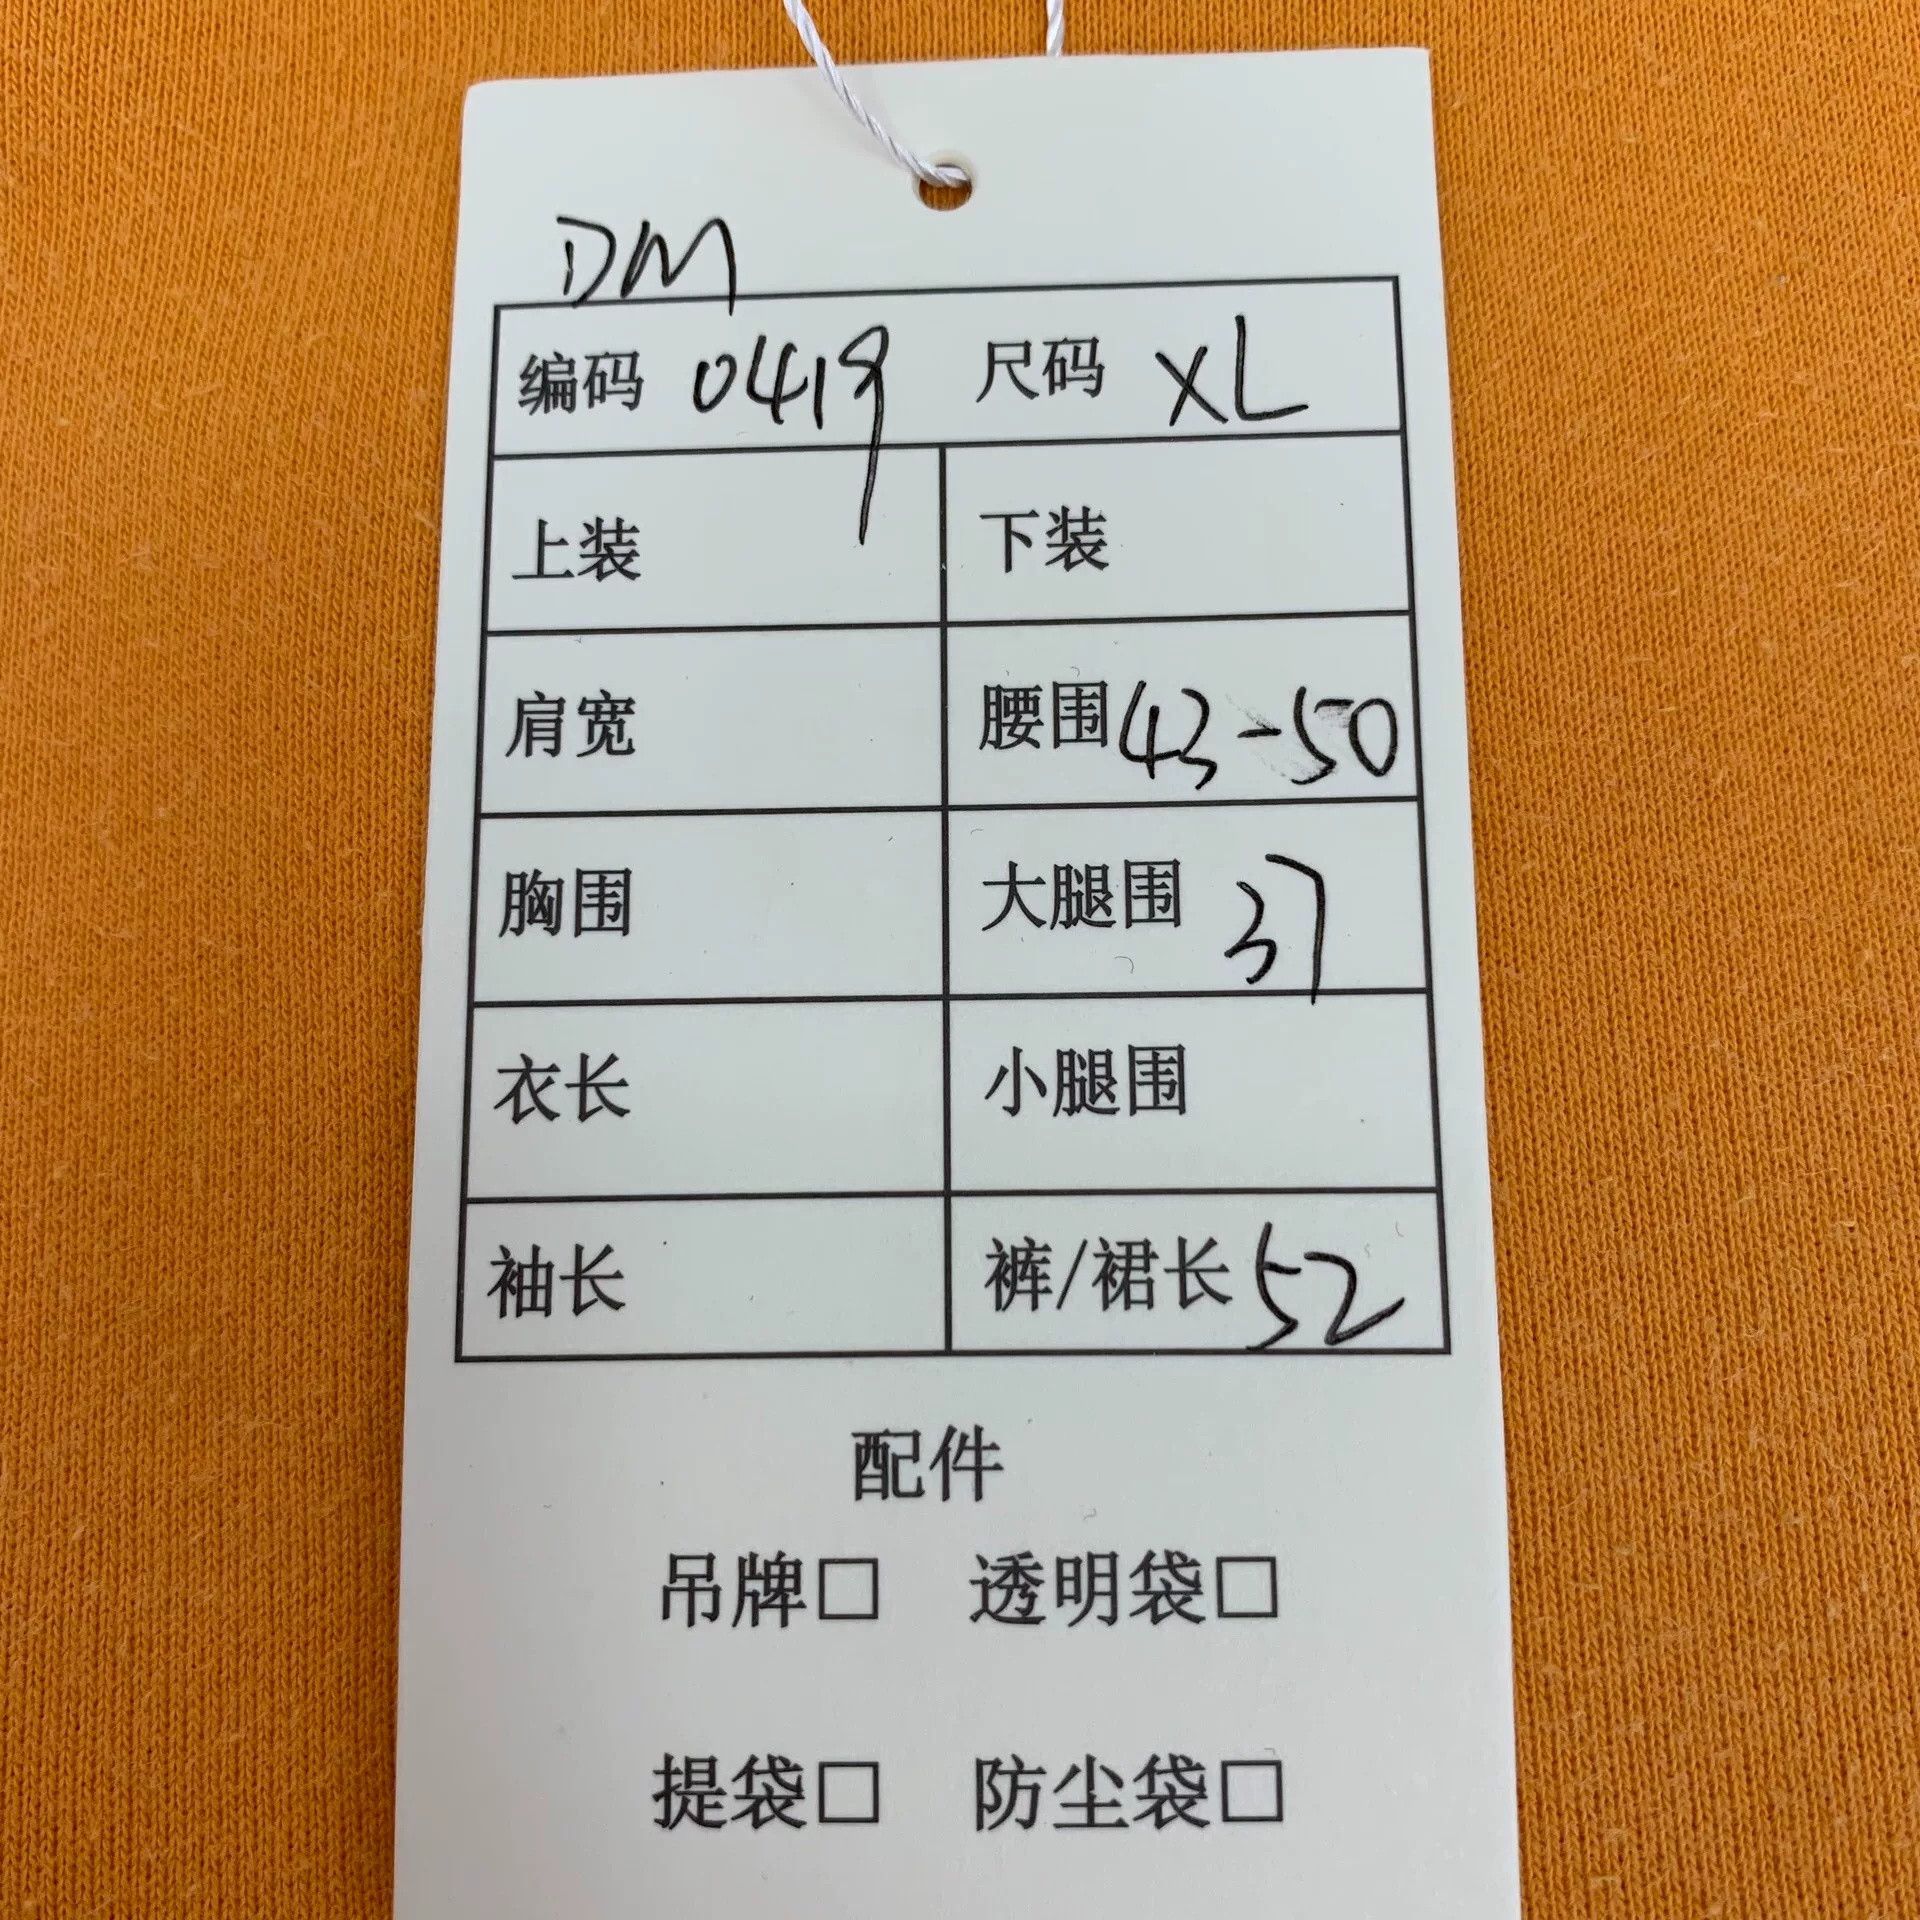 DM
编码 0419 尺码 XL
上装 下装
肩宽 腰围 43-50
胸围 大腿围 37
衣长 小腿围
袖长 裤/裙长 52
配件
吊牌□ 透明袋□
提袋□ 防尘袋□